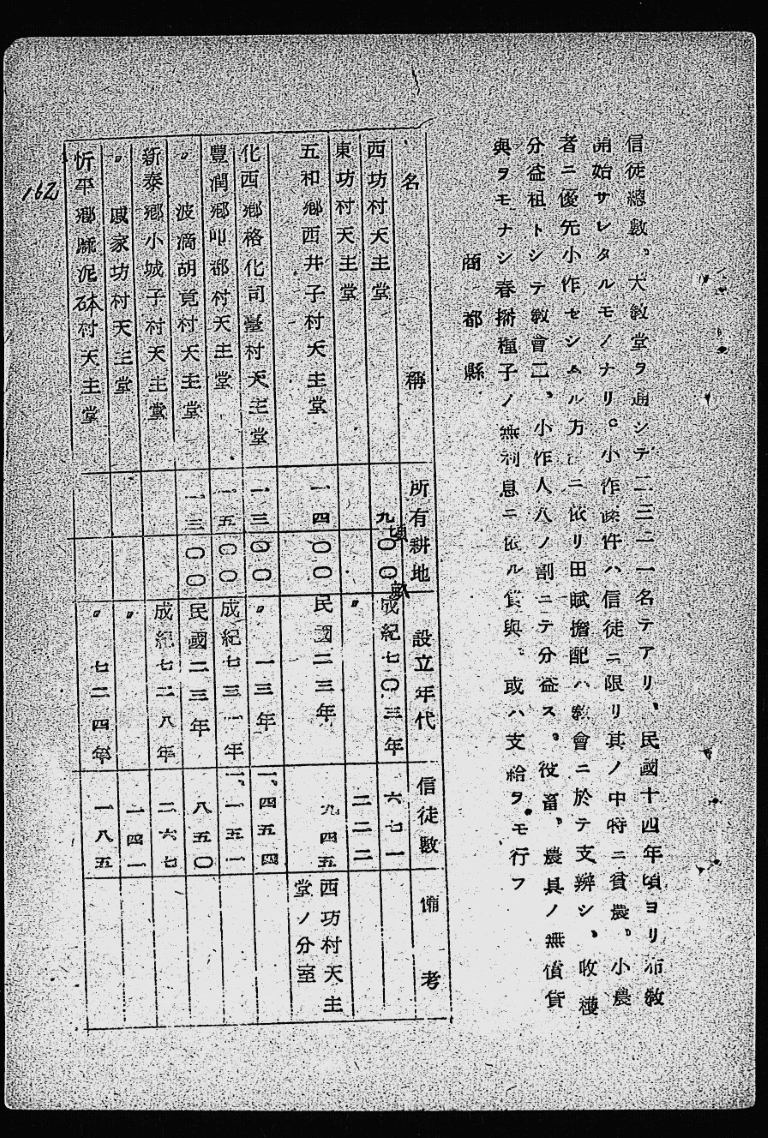 信徒總數、大敎堂ヲ通シテ二三二一名テアリ、民國十四年頃ヨリ布敎
開始サレタルモノナリ。小作條件ハ信徒ニ限リ其ノ中特ニ貧農、小農
者ニ優先小作セシムル方ニ依リ田賦擔配ハ敎會ニ於テ支辨シ、收穫
分益租トシテ敎會二、小作人八ノ割ニテ分益ス。役畜、農具ノ無償貸
與ヲモナシ春掰種子ノ無利息ニ依ル貸與、或ハ支給ヲモ行フ
商都縣
名稱 所有耕地 設立年代 信徒數 備考
西坊村天主堂 九頃〇〇畝 成紀七〇三年 六七一
東坊村天主堂 〃 二二二
五和鄉西井子村天主堂 一四〇〇 民國二三年 九四五 西坊村天主堂ノ分室
化西鄉格化司臺村天主堂 一三〇〇 〃一三年 一、四五四
豐潤鄉叫郡村天主堂 一五〇〇 成紀七三一年 一、一五一
〃波滴胡竟村天主堂 一三〇〇 民國二三年 八五〇
新泰鄉小城子村天主堂 成紀七二八年 二六七
〃戚家坊村天主堂 〃 一四一
忻平鄉 泥砵村天主堂 〃七二四年 一八五
162